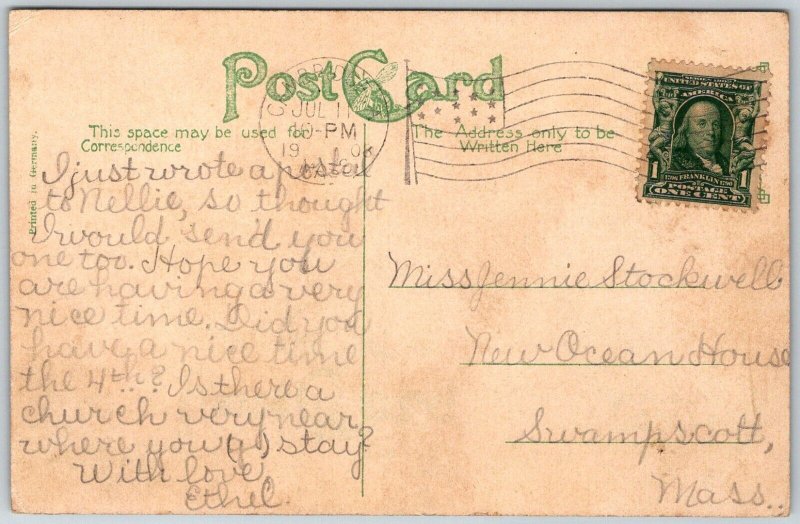 Post Card
This space may be used for
Correspondence
The Address only to be
Written Here
Printed in Germany.
JUL 11
10-PM
1908
MASS
SERIES 1902
UNITED STATES OF
AMERICA
1 FRANKLIN 1
POSTAGE
ONE CENT
I just wrote a postal
to Nellie, so thought
I would send you
one too. Hope you
are having a very
nice time. Did you
have a nice time
the 4th? Is there a
church very near
where you () stay?
With love,
Ethel.
Miss Jennie Stockwell
New Ocean House
Swampscott,
Mass..